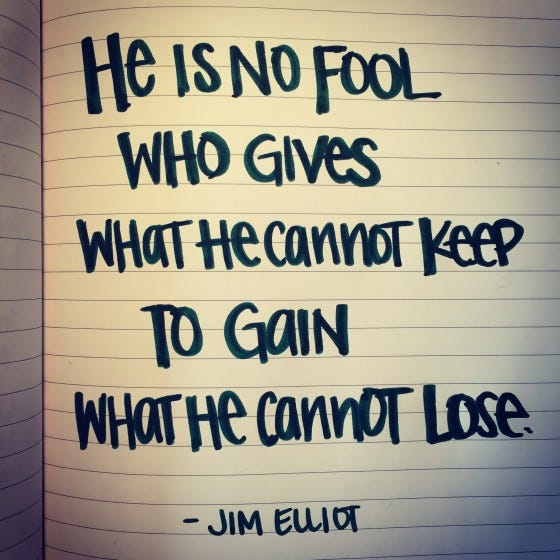 He is no fool
who gives
what he cannot keep
to gain
what he cannot lose.
- Jim Elliot